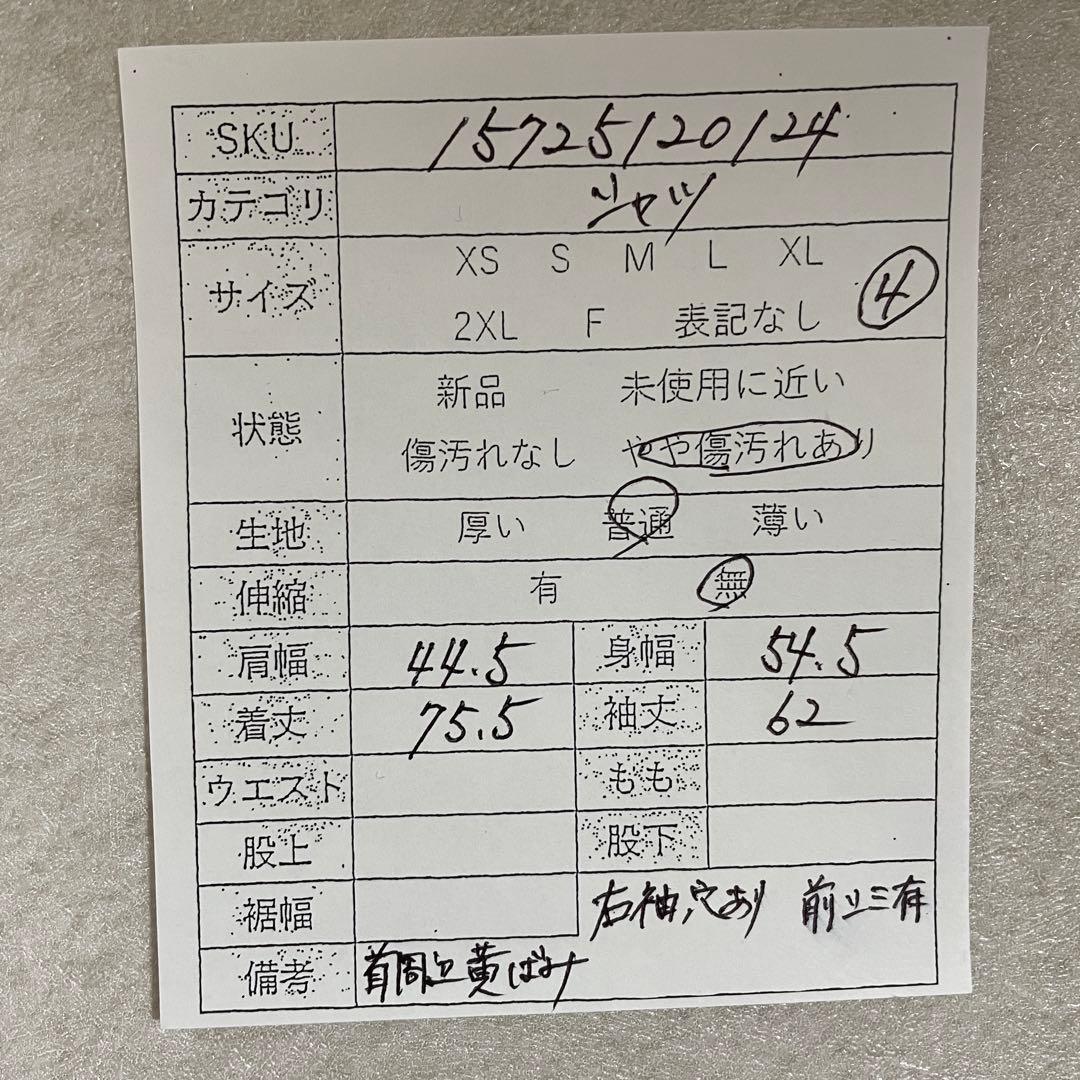 SKU 15725120124
カテゴリ シャツ
サイズ XS S M L XL
2XL F 表記なし ④
状態 新品 未使用に近い
傷汚れなし やや傷汚れあり
生地 厚い 普通 薄い
伸縮 有 無
肩幅 44.5 身幅 54.5
着丈 75.5 袖丈 62
ウエスト もも
股上 股下
裾幅 右袖穴あり 前シミ有
備考 首周り黄ばみ